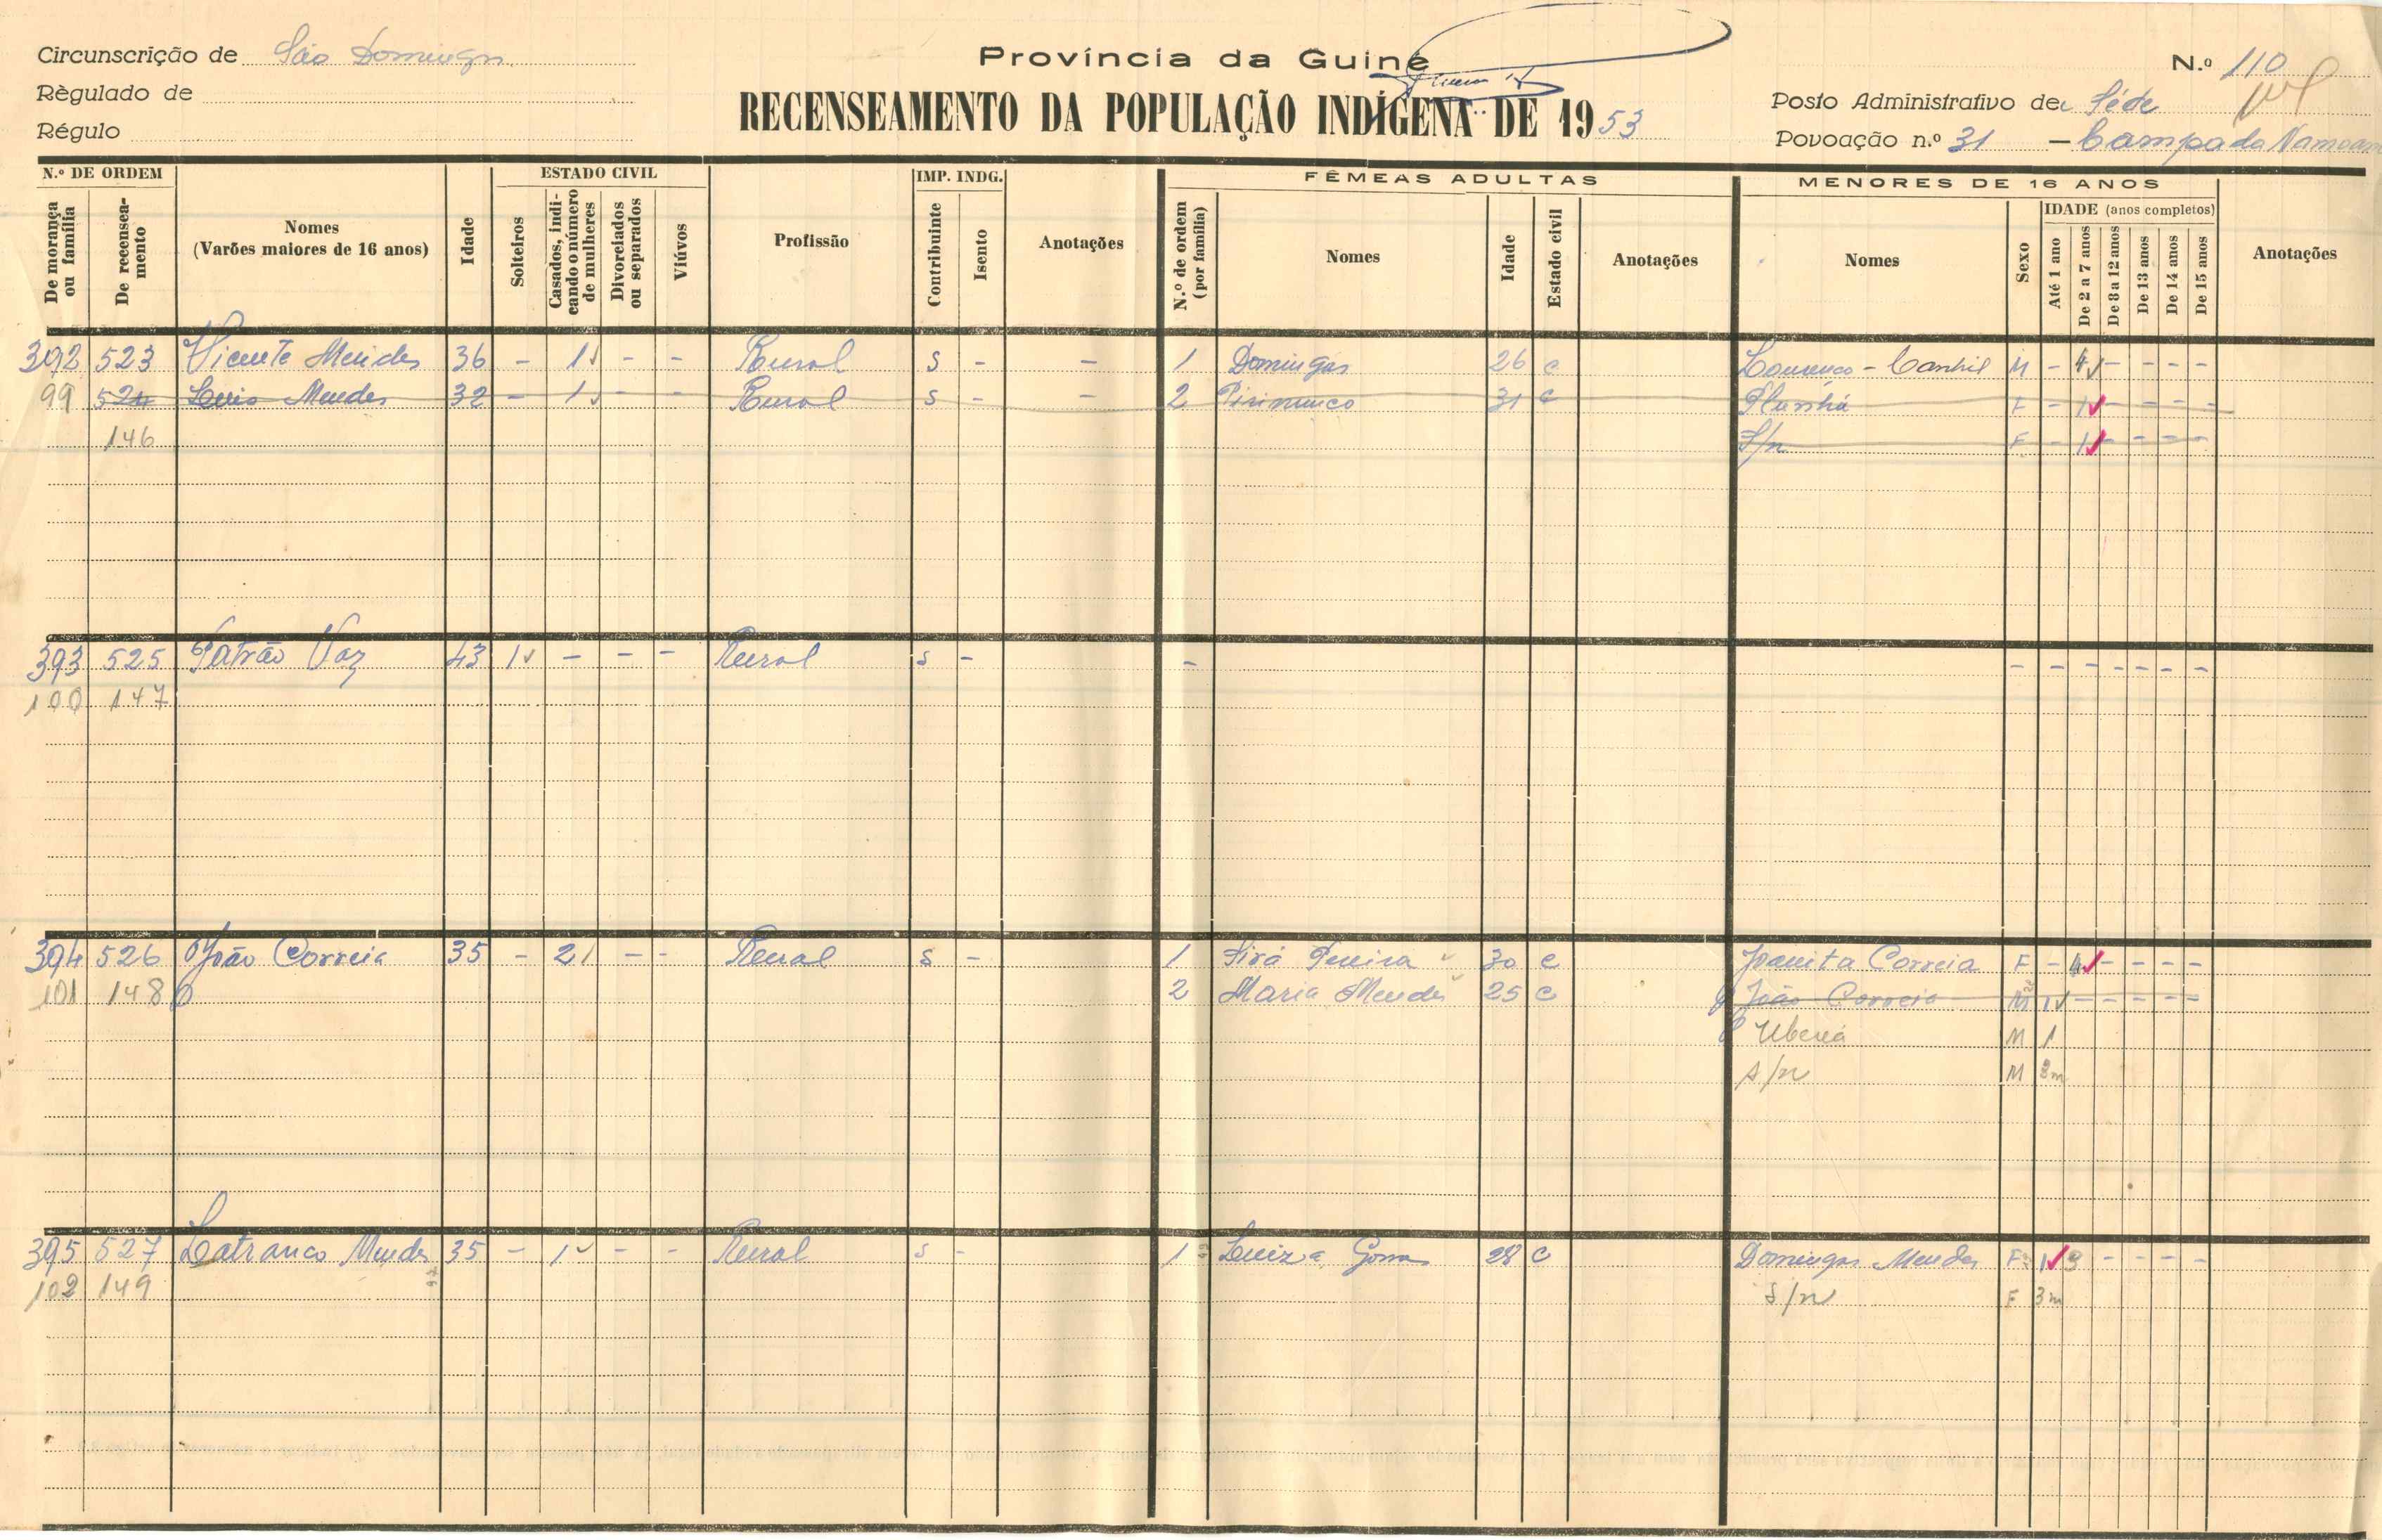 Circunscrição de São Domingos
Província da Guiné
N.º 110
Règulado de
Régulo
RECENSEAMENTO DA POPULAÇÃO INDÍGENA DE 1953
Posto Administrativo de Séde
Povoação n.º 31 — Campada
N.º DE ORDEM
De morança ou família
De recenseamento
Nomes
(Varões maiores de 16 anos)
Idade
ESTADO CIVIL
Solteiros
Casados, indicando o número de mulheres
Divorciados ou separados
Viúvos
Profissão
IMP. INDG.
Contribuinte
Isento
Anotações
FÊMEAS ADULTAS
N.º de ordem (por família)
Nomes
Idade
Estado civil
Anotações
MENORES DE 16 ANOS
Nomes
Sexo
IDADE (anos completos)
Até 1 ano
De 2 a 7 anos
De 8 a 12 anos
De 13 anos
De 14 anos
De 15 anos
Anotações
392 523 Vicente Mendes 36 - 1 - - Rural S - - 1 Domingas 26 C Lourenço - Canhil M - 4 - - - -
99 524 Luis Mendes 32 - 1 - - Rural S - - 2 31 C F - 1 - - - -
146 S/n F - 1 - - - -
393 525 Patrão Vaz 43 1 - - - Rural S - - - - - - - - -
100 147
394 526 João Correia 35 - 2 - - Rural S - 1 Sirá Pereira 30 C Joanita Correia F - 4 - - - -
101 148 2 Maria Mendes 25 C João Correia M 1 - - - - -
M 1
S/n M 3m
395 527 Latranco Mendes 35 - 1 - - Rural S - 1 Luiza Goma 28 C Domingas Mendes F 1 3 - - - -
102 149 S/n F 3m